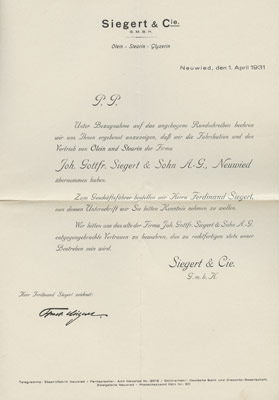 Siegert & Cie.
G.M.B.H.
Olein - Stearin - Glyzerin
Neuwied, den 1. April 1931
P. P.
Unter Bezugnahme auf das umgehogene Rundschreiben beehren
wir uns Ihnen ergebenst anzuzeigen, daß wir die Fabrikation und den
Vertrieb von Olein und Stearin der Firma
Joh. Gottfr. Siegert & Sohn A.-G., Neuwied
übernommen haben.
Zum Geschäftsführer bestellen wir Herrn Ferdinand Siegert,
von dessen Unterschrift wir Sie bitten Kenntnis nehmen zu wollen.
Wir bitten uns das alte der Firma Joh. Gottfr. Siegert & Sohn A.-G.
entgegengebrachte Vertrauen zu bewahren, das zu rechtfertigen stets unser
Bestreben sein wird.
Siegert & Cie.
G. m. b. H.
Herr Ferdinand Siegert zeichnet: